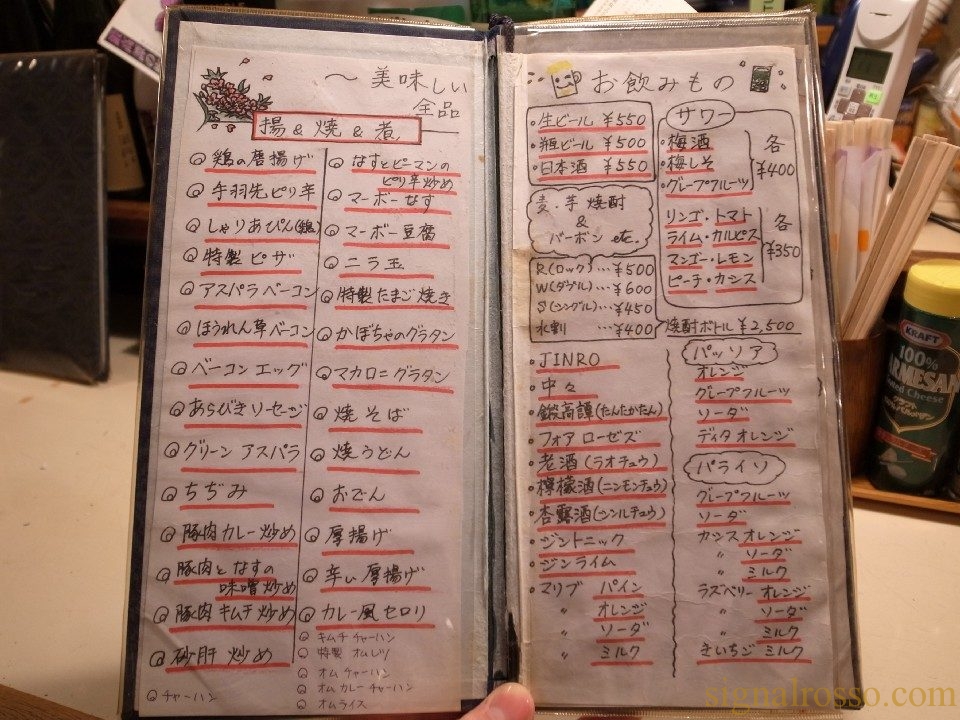 〜美味しい
全品
揚&焼&煮
鶏の唐揚げ
手羽先ピリ辛
しゃりあぴん(鶏)
特製ピザ
アスパラベーコン
ほうれん草ベーコン
ベーコンエッグ
あらびきソーセージ
グリーンアスパラ
ちぢみ
豚肉カレー炒め
豚肉となすの
味噌炒め
豚肉キムチ炒め
砂肝炒め
チャーハン
なすとピーマンの
ピリ辛炒め
マーボーなす
マーボー豆腐
ニラ玉
特製たまご焼き
かぼちゃのグラタン
マカロニグラタン
焼そば
焼うどん
おでん
厚揚げ
辛い厚揚げ
カレー風セロリ
キムチチャーハン
特製オムレツ
オムチャーハン
オムカレーチャーハン
オムライス
お飲みもの
・生ビール ¥550
・瓶ビール ¥500
・日本酒 ¥550
麦・芋焼酎
&
バーボン etc.
R(ロック)…¥500
W(ダブル)…¥600
S(シングル)…¥450
水割 …¥400
焼酎ボトル ¥2,500
サワー
・梅酒
・梅しそ
・グレープフルーツ
各
¥400
リンゴ・トマト
ライム・カルピス
マンゴー・レモン
ピーチ・カシス
各
¥350
・JINRO
・中々
・鍛高譚(たんたかたん)
・フォアローゼズ
・老酒(ラオチュウ)
・檸檬酒(ニンモンチュウ)
・杏露酒(シンルチュウ)
・ジントニック
・ジンライム
・マリブ パイン
〃 オレンジ
〃 ソーダ
〃 ミルク
パッソア
オレンジ
グレープフルーツ
ソーダ
ディタオレンジ
パライソ
グレープフルーツ
ソーダ
カシスオレンジ
〃 ソーダ
〃 ミルク
ラズベリーオレンジ
〃 ソーダ
〃 ミルク
きいちごミルク
KRAFT
100%
PARMESAN
Grated Cheese
signalrosso.com